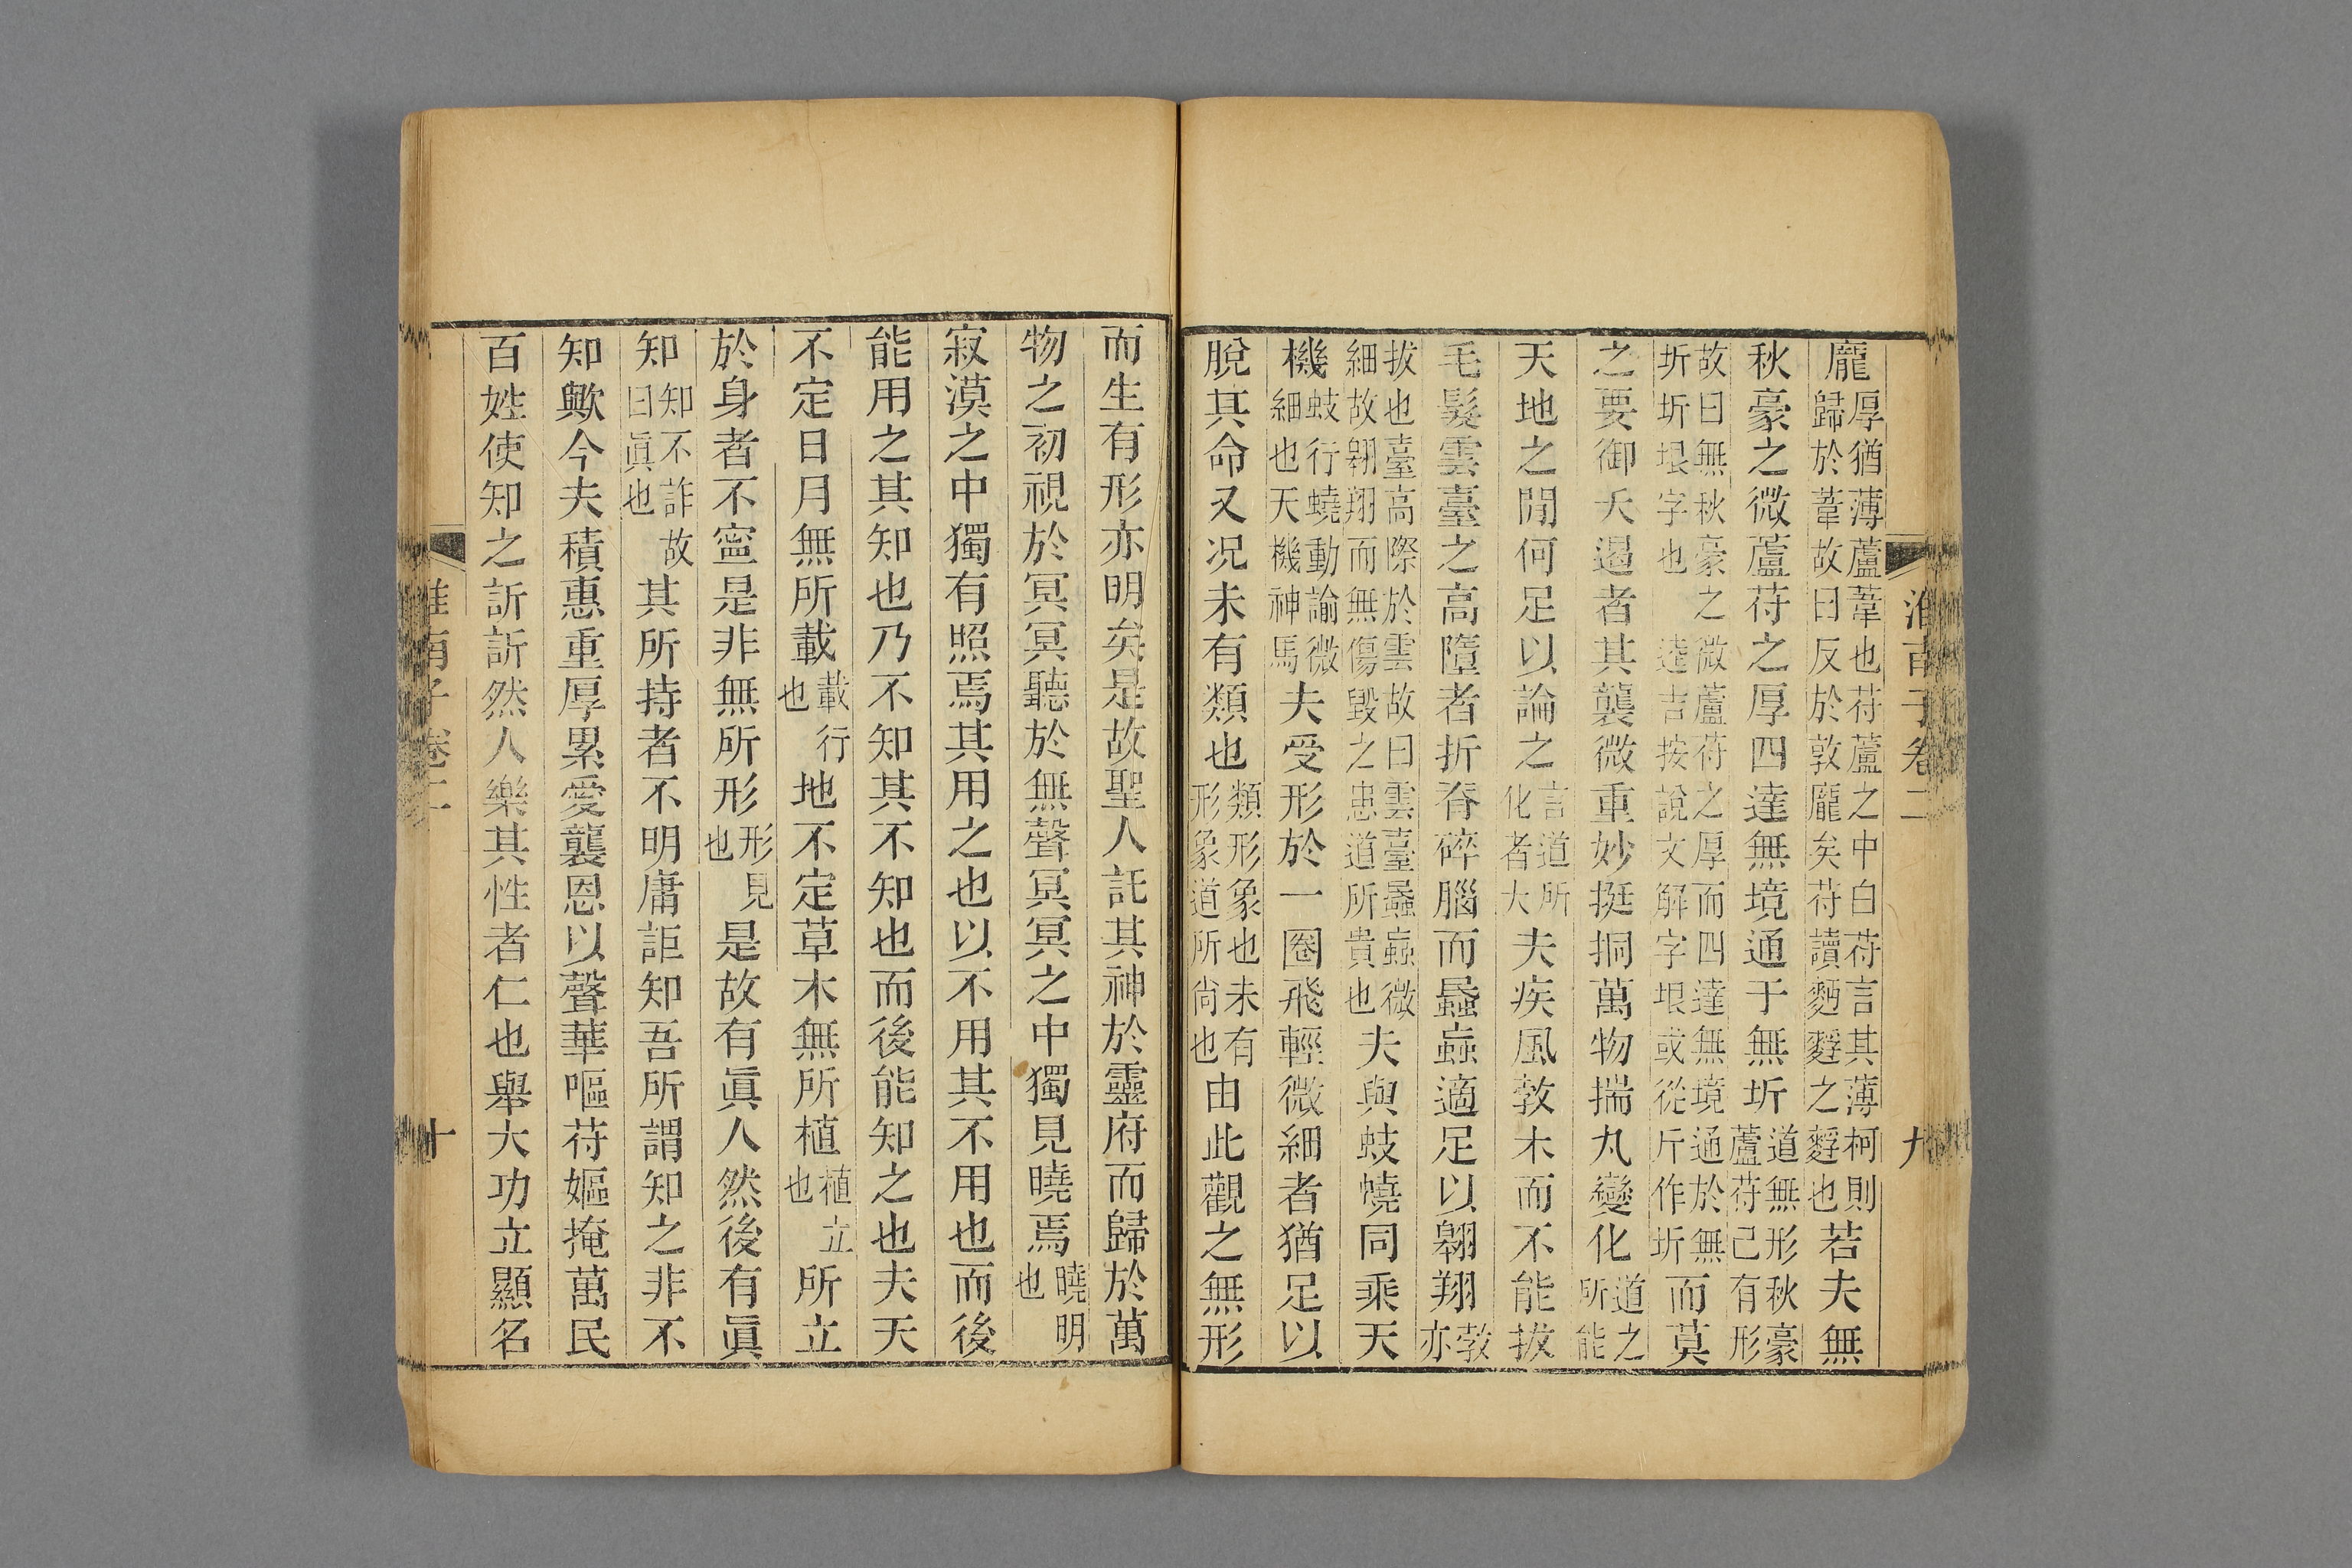 淮南子卷二 九
龐厚猶薄蘆葦也苻蘆之中白苻言其薄柯則歸於葦故曰反於敦龐矣苻讀麪䴸之䴸也若夫無
秋豪之微蘆苻之厚四達無境通于無圻道無形秋豪蘆苻已有形
故曰無秋豪之微蘆苻之厚而四達無境通於無圻圻垠字也 逵吉按說文解字垠或從斤作圻而莫
之要御夭遏者其襲微重妙挺挏萬物揣丸變化道之所能
天地之閒何足以論之言道所化者大夫疾風㪍木而不能拔
毛髮雲臺之高墮者折脊碎腦而蟁蝱適足以翱翔㪍亦
拔也臺高際於雲故曰雲臺蟁蝱微細故翱翔而無傷毀之患道所貴也夫與蚑蟯同乘天
機蚑行蟯動諭微細也天機神馬夫受形於一圈飛輕微細者猶足以
脫其命又況未有類也類形象也未有形象道所尚也由此觀之無形
而生有形亦明矣是故聖人託其神於靈府而歸於萬
物之初視於冥冥聽於無聲冥冥之中獨見曉焉曉明也
寂漠之中獨有照焉其用之也以不用其不用也而後
能用之其知也乃不知其不知也而後能知之也夫天
不定日月無所載載行也地不定草木無所植植立也所立
於身者不寧是非無所形形見也是故有眞人然後有眞
知知不詐故曰眞也其所持者不明庸詎知吾所謂知之非不
知歟今夫積惠重厚累愛襲恩以聲華嘔苻嫗掩萬民
百姓使知之訢訢然人樂其性者仁也舉大功立顯名
淮南子卷二 十